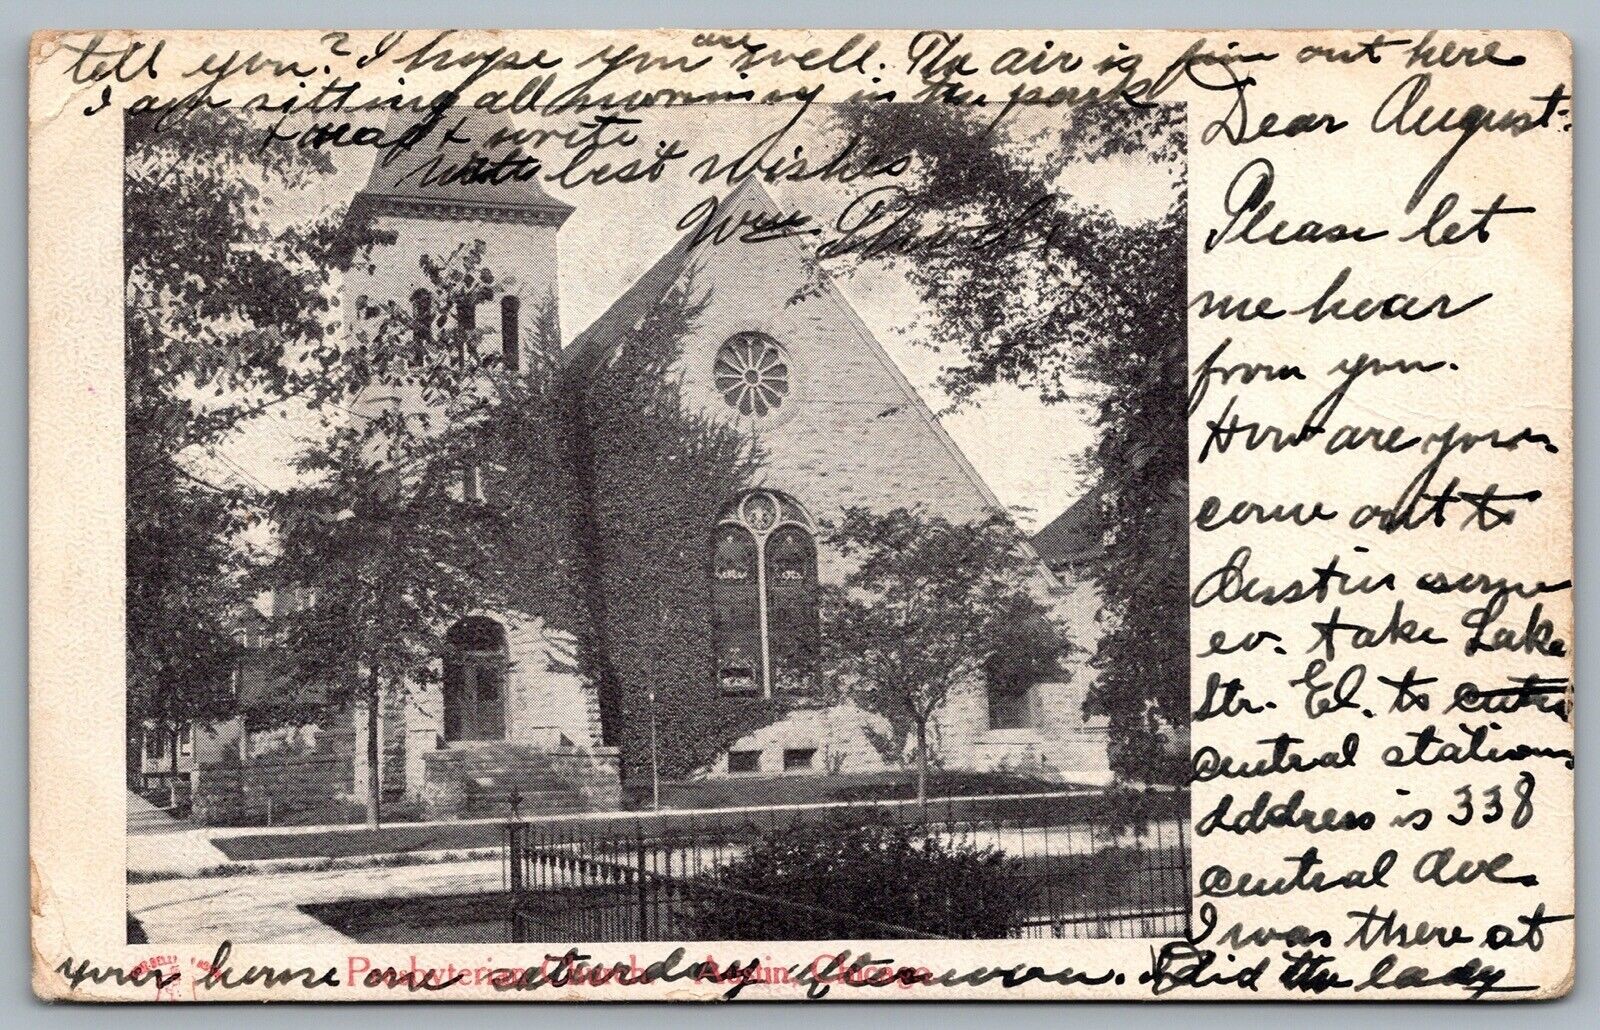 Dear August:
Please let
me hear
from you.
How are you
come out to
Austin some
ev. take Lake
Str. El. to
central station
address is 338
central Ave.
I was there at
your house one saturday afternoon. did the lady
tell you? I hope you are well. The air is fine out here
I am sitting all morning in the park
+ read + write
with best wishes
Wm.
Presbyterian Church, Austin, Chicago